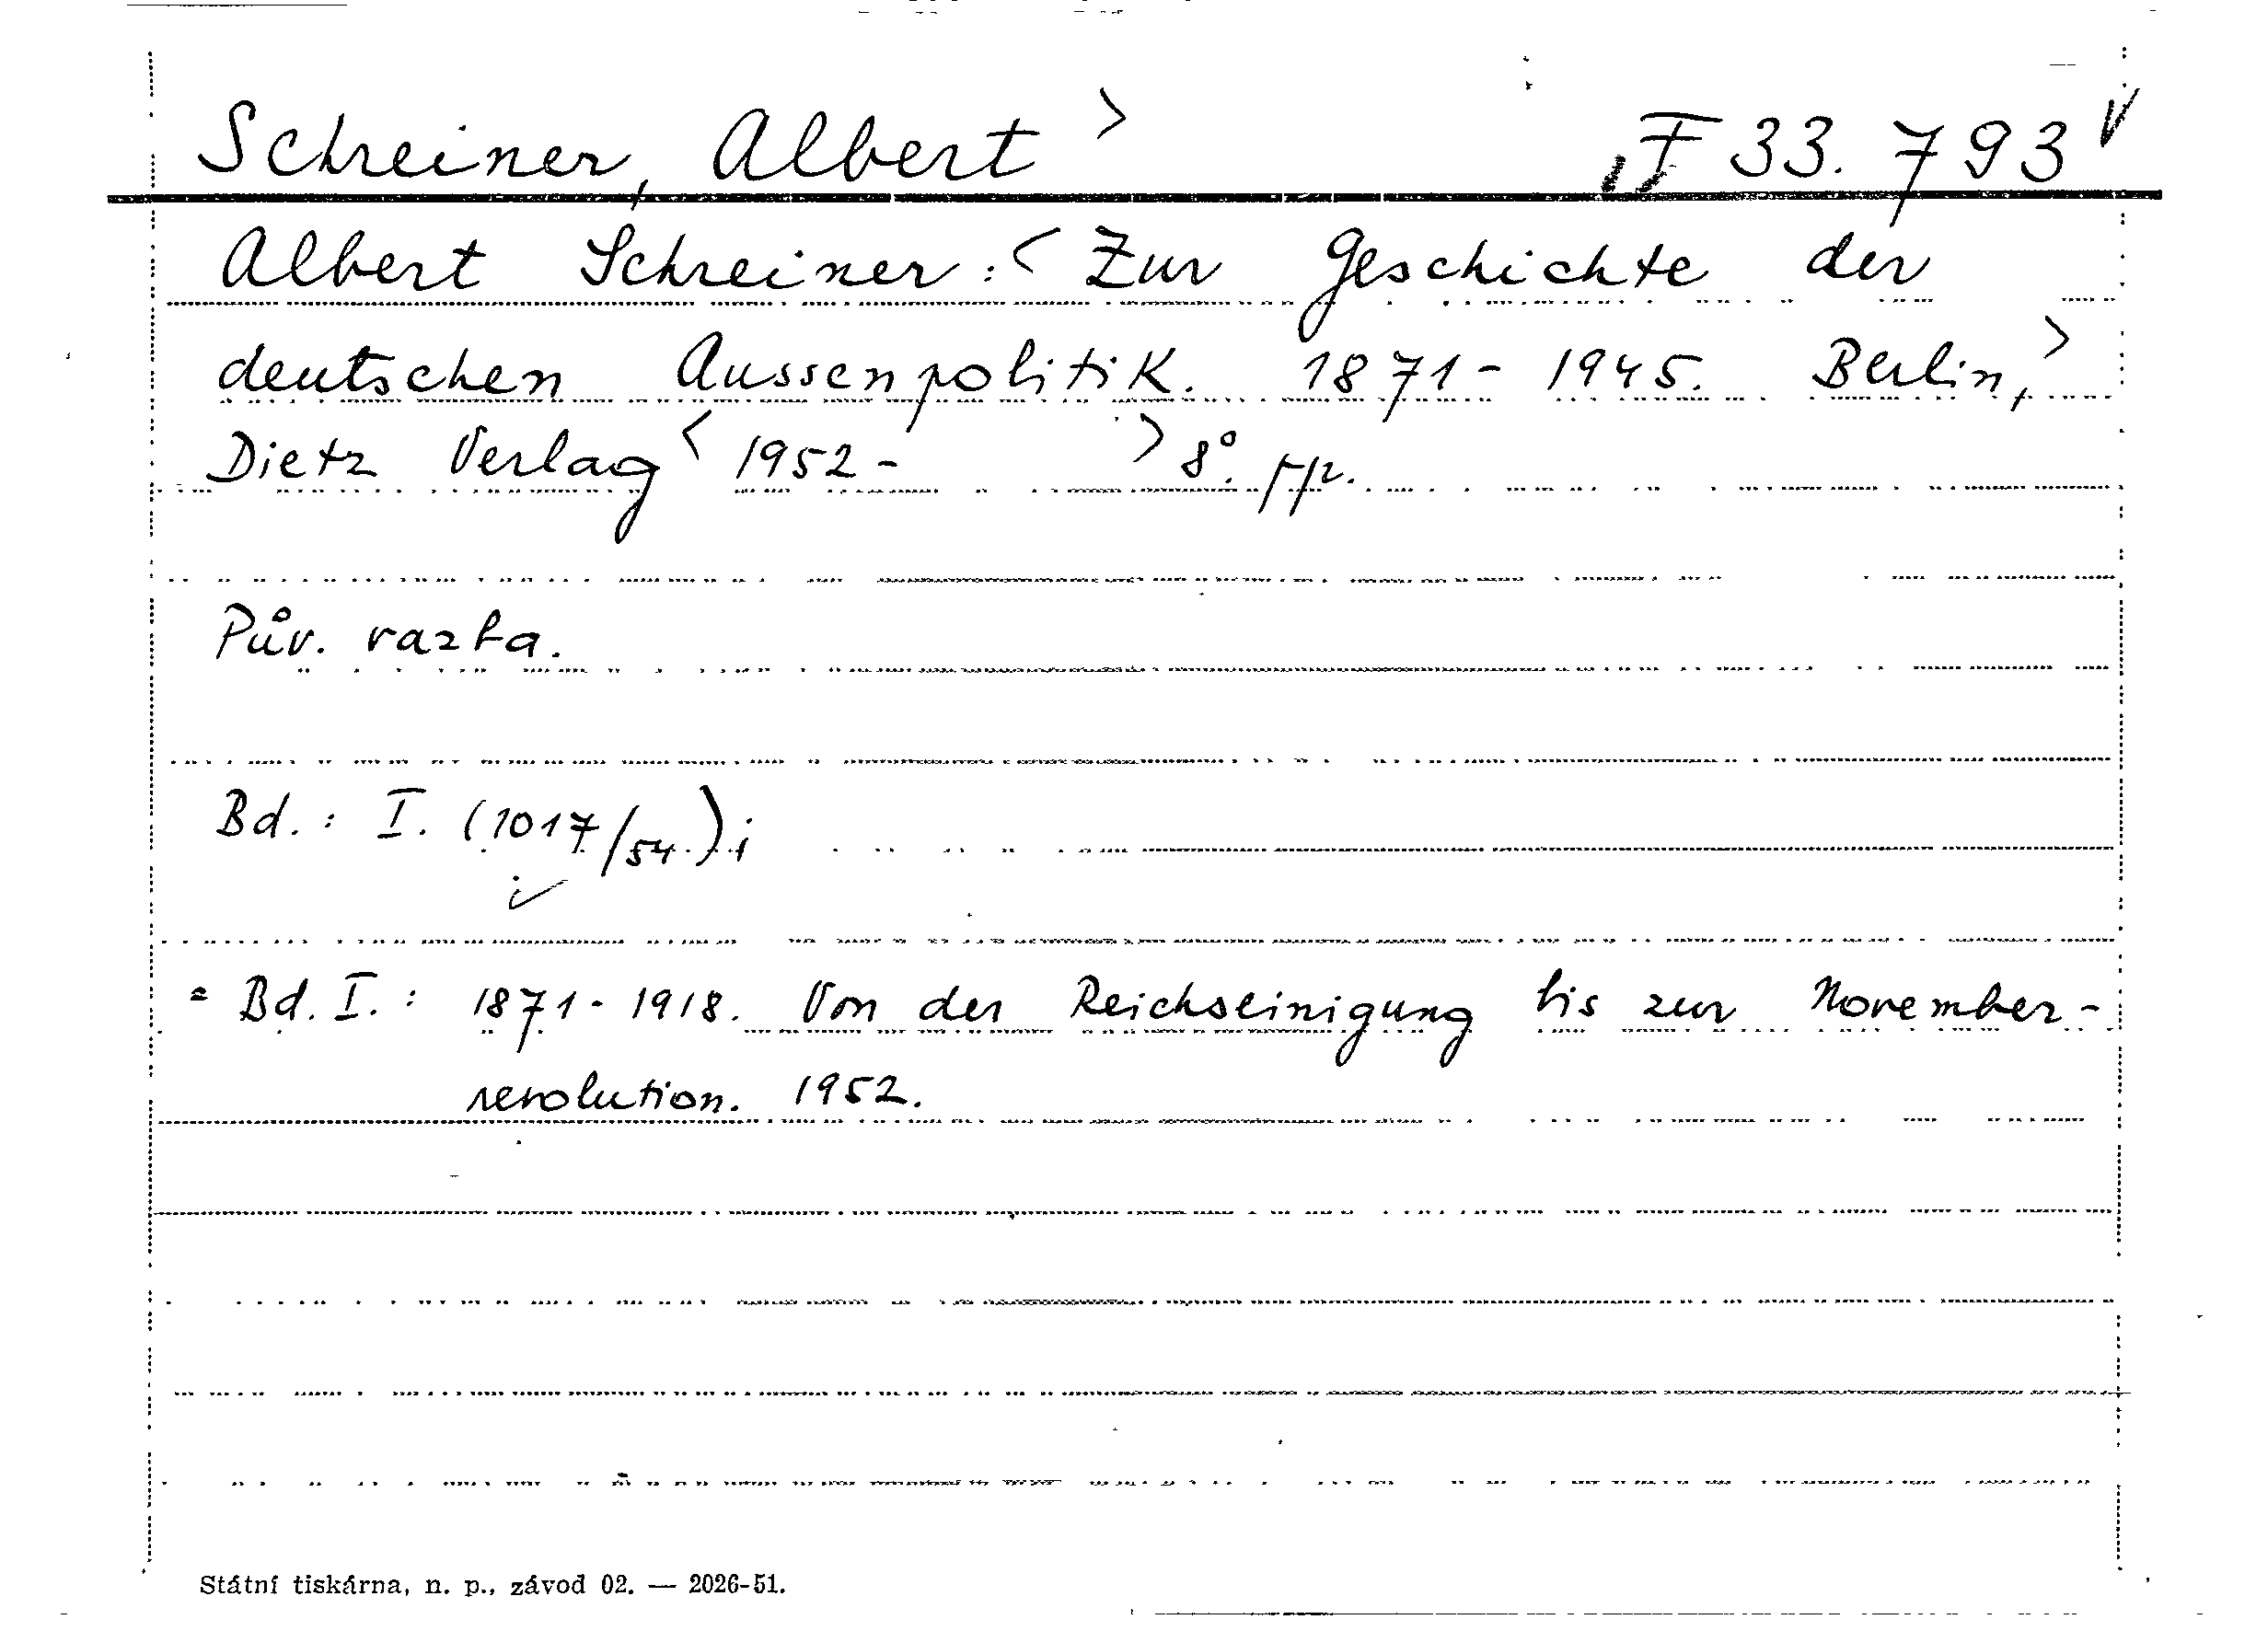 Schreiner, Albert > F 33.793
Albert Schreiner: < Zur Geschichte der
deutschen Aussenpolitik. 1871- 1945. Berlin, >
Dietz Verlag < 1952 - > 8°.
Pův. vazba.
Bd.: I. (1017/54.) i
= Bd. I.: 1871-1918. Von der Reichseinigung bis zur November-
revolution. 1952.
Státní tiskárna, n. p., závod 02. — 2026-51.